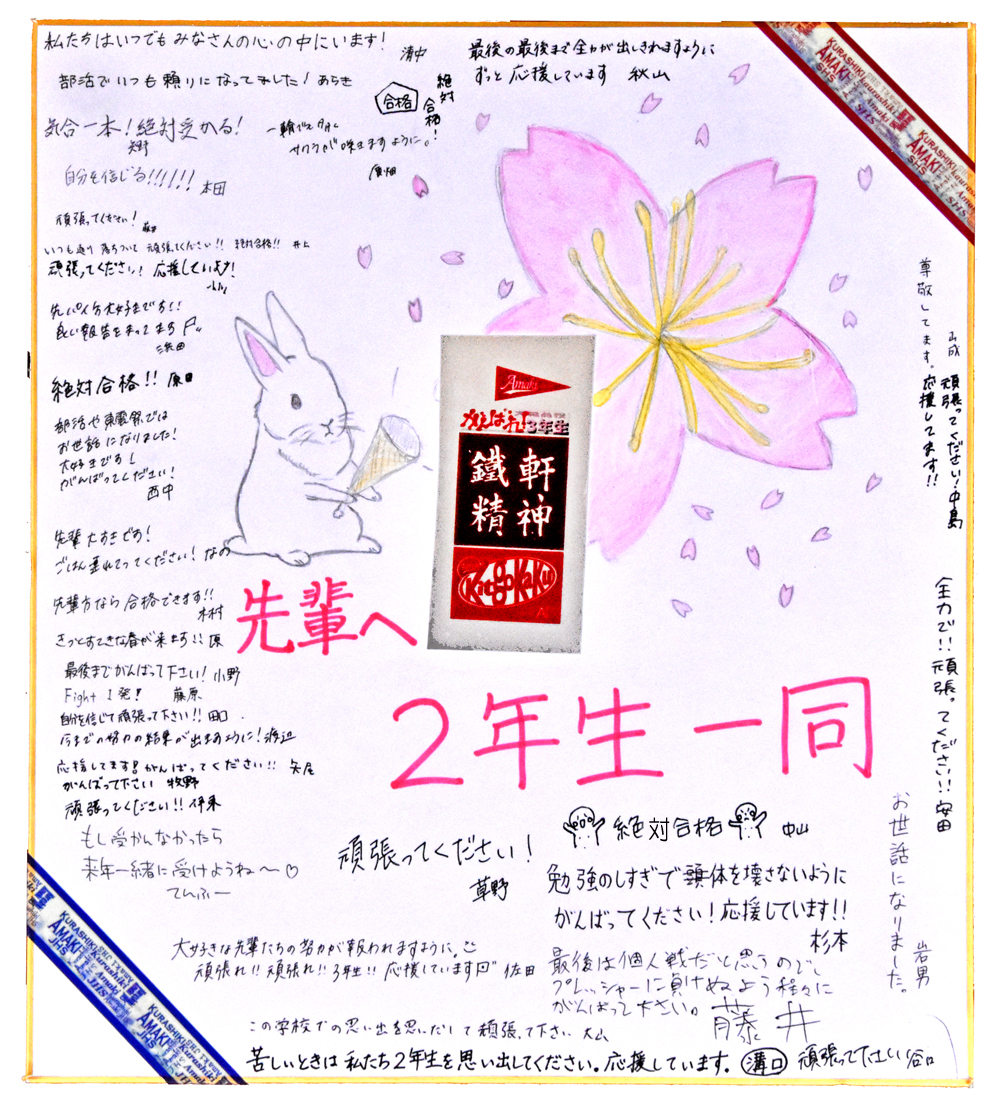 私たちはいつでもみなさんの心の中にいます! 清中
部活でいつも頼りになってました! あらき
合格
絶対
合格!
最後の最後まで全力が出しきれますように
ずっと応援しています 秋山
気合一本!絶対受かる!
サクラが咲きますように。
自分を信じる!!!!!! 本田
頑張ってください!
いつも通り落ちついて頑張ってください!! 絶対合格!! 井上
頑張ってください! 応援しています!
良い報告をまってます
絶対合格!! 原田
部活や
お世話になりました!
大好きです!
がんばってください!
西中
先輩大すきです!
先輩方なら合格できます!!
木村
きっとすてきな春が来ます!! 原
最後までがんばって下さい! 小野
Fight 1発! 藤原
自分を信じて頑張って下さい!! 田口
今までの努力の結果が出ますように! 渡辺
応援してます!がんばってください!! 矢尾
がんばって下さい 牧野
頑張ってください!! 伊東
もし受かんなかったら
来年一緒に受けようね〜♡
てんふー
Amaki
がんばれ!3年生
鐵軒
精神
KitGoKaKu
先輩へ
2年生一同
尊敬してます。応援してます!!
頑張ってください! 中島
全力で!!頑張ってください!! 安田
お世話になりました。
岩男
頑張ってください!
草野
絶対合格 中山
勉強のしすぎで体を壊さないように
がんばってください!応援しています!!
杉本
大好きな先輩たちの努力が報われますように。
頑張れ!! 頑張れ!! 3年生!! 応援しています 佐田
最後は個人戦だと思うので、
プレッシャーに負けぬよう程々に
がんばって下さい。 藤井
この学校での思い出を思いだして頑張って下さい 大山
苦しいときは私たち2年生を思い出してください。応援しています。 溝口
頑張って下さい 谷口
KURASHIKI
AMAKI
SHS
KURASHIKI
AMAKI
SHS
KURASHIKI
AMAKI
JHS
KURASHIKI
AMAKI